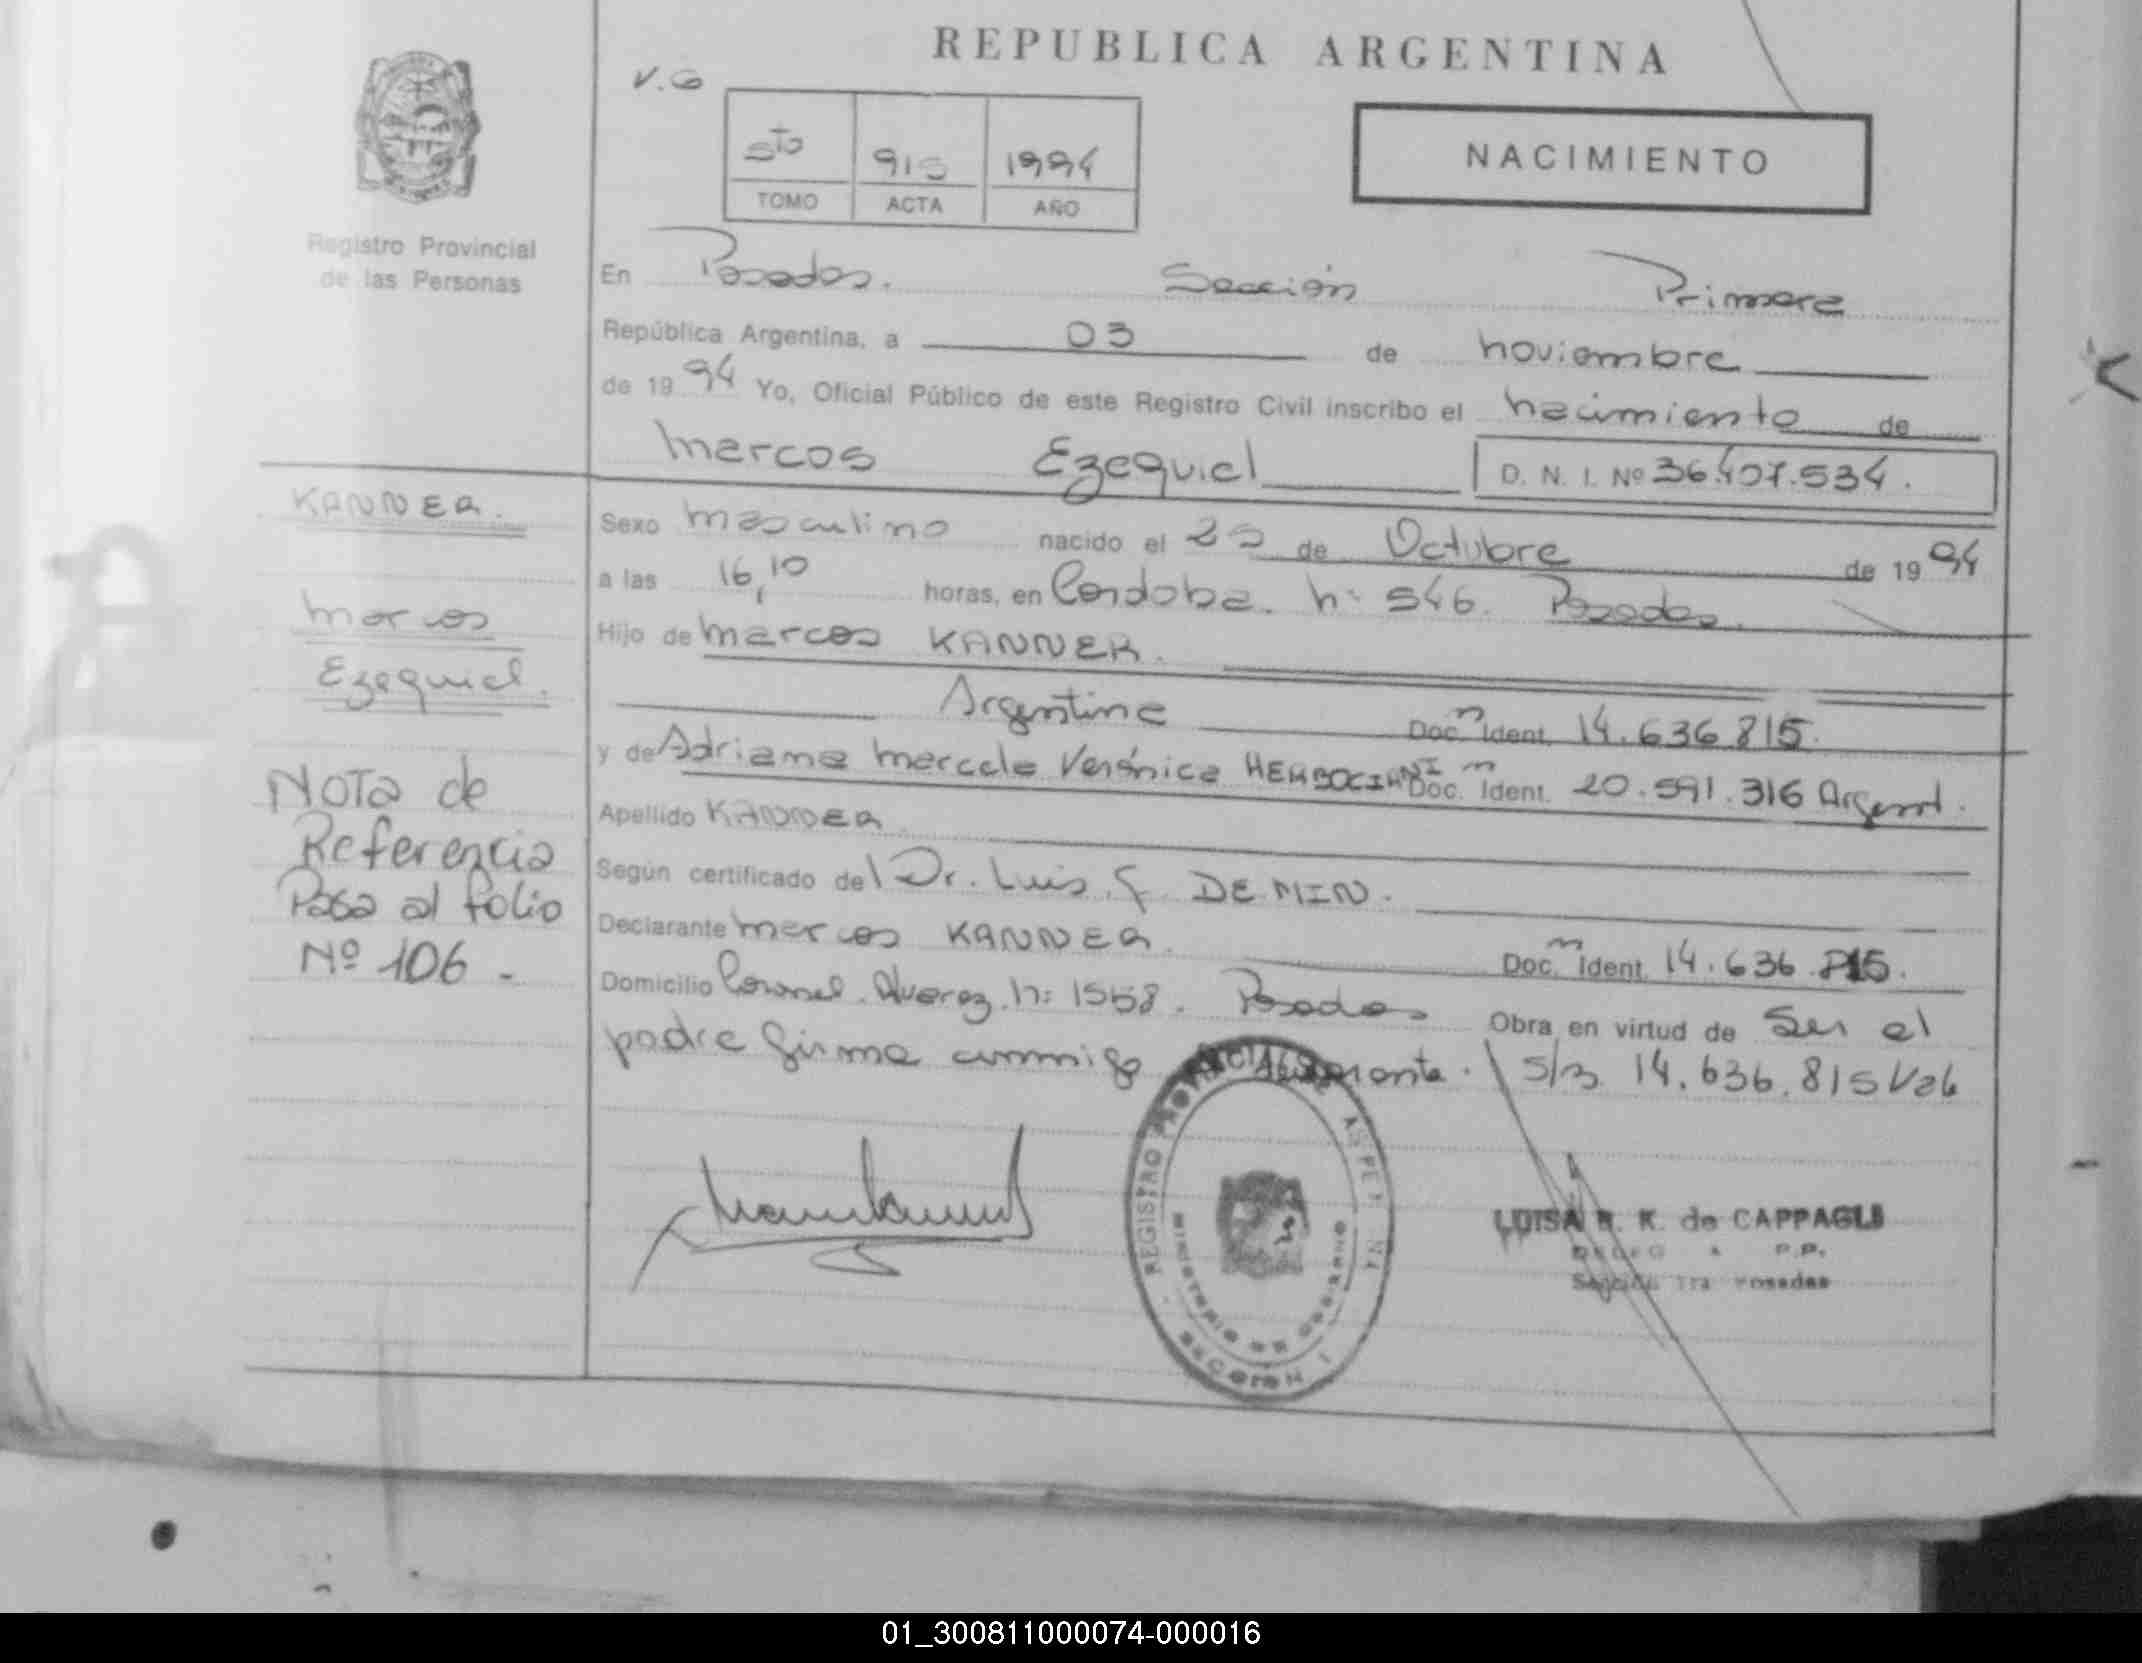 REPUBLICA ARGENTINA
V.G
5to 915 1994
TOMO ACTA AÑO
NACIMIENTO
Registro Provincial
de las Personas
En Posadas. Sección Primera
República Argentina, a 03 de noviembre
de 1994 Yo, Oficial Público de este Registro Civil inscribo el nacimiento de
Marcos Ezequiel D. N. I. Nº 36.407.534.
KANNER.
Marcos
Ezequiel.
Nota de
Referencia
Pasa al folio
Nº 106 -
Sexo masculino nacido el 25 de Octubre de 1994
a las 16,10 horas, en Cordoba. n: 546. Posadas.
Hijo de Marcos KANNER.
Argentina Doc. m Ident. 14.636.815.
y de Adriana Marcela Verónica Doc. m Ident. 20.591.316 Argent.
Apellido KANNER
Según certificado del Dr. Luis. G. DEMIN.
Declarante Marcos KANNER. Doc. m Ident. 14.636.815.
Domicilio Coronel. Alvarez. n: 1558. Posadas Obra en virtud de Ser el
padre firma conmigo s/r 14.636.815 Vale
REGISTRO PROVINCIAL DE LAS PERSONAS
MINISTERIO DE GOBIERNO
SECCION I
LUISA R. K. de CAPPAGLI
Sección 1ra Posadas
01_300811000074-000016